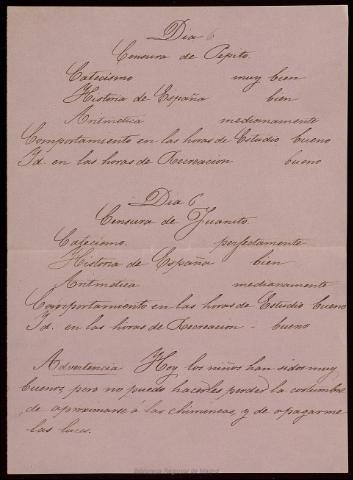 Dia 6
Censura de Pepito
Catecismo muy bien
Historia de España bien
Aritmetica medianamente
Comportamiento en las horas de Estudio bueno
Id. en las horas de Recreacion bueno
Dia 6
Censura de Juanito
Catecismo perfectamente
Historia de España bien
Aritmetica medianamente
Comportamiento en las horas de Estudio bueno
Id. en las horas de Recreacion - bueno
Advertencia Hoy los niños han sidos muy
buenos, pero no puedo hacerles perder la costumbre
de aproximarse á las chimeneas, y de apagarme
las luces.
Biblioteca Regional de Madrid